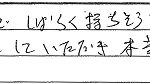 しばらく持ちそう
していただき 本当